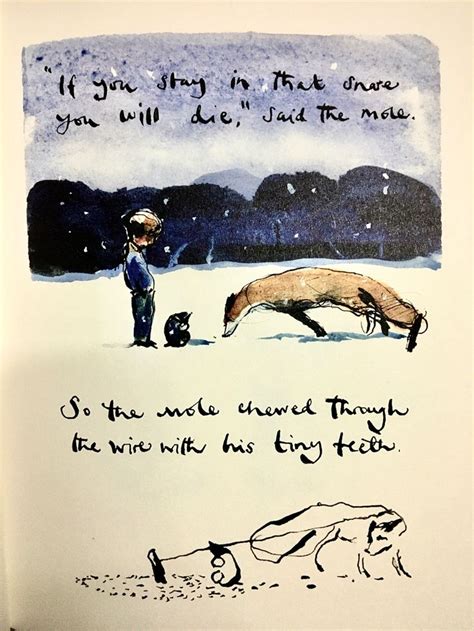 "If you stay in that snare
you will die," said the mole.
So the mole chewed through
the wire with his tiny teeth.